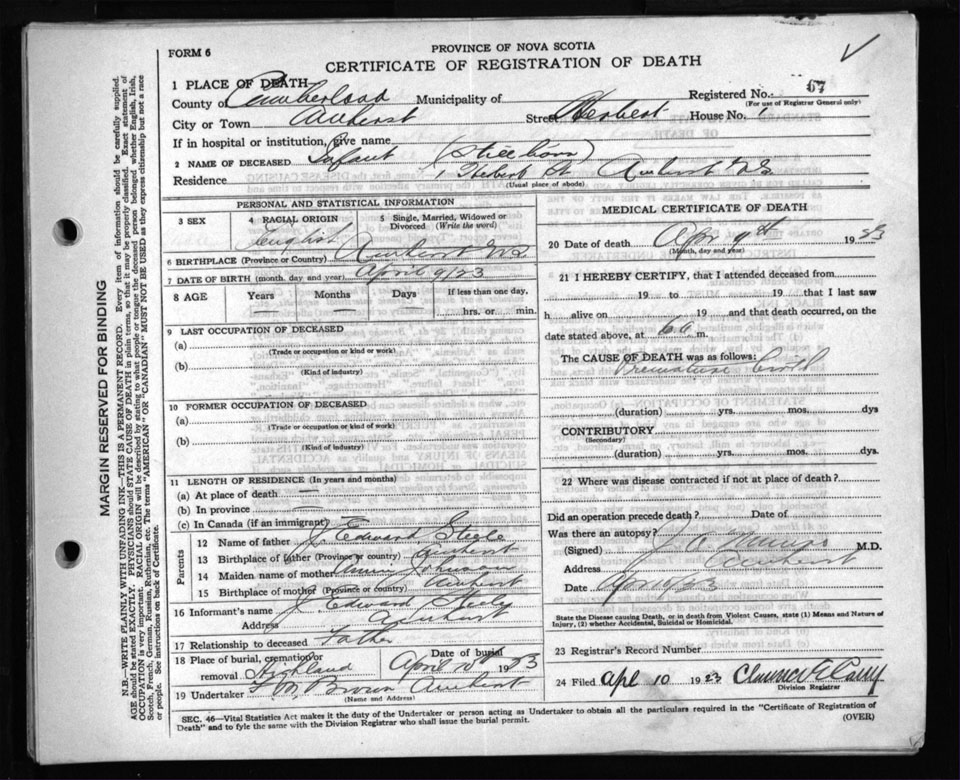 FORM 6
PROVINCE OF NOVA SCOTIA
CERTIFICATE OF REGISTRATION OF DEATH
1 PLACE OF DEATH
Registered No. 67
(For use of Registrar General only)
County of Cumberland Municipality of
City or Town Amherst Street Herbert House No. 1
If in hospital or institution, give name
2 NAME OF DECEASED Infant (Stillborn)
Residence 1 Herbert St. Amherst N.S.
(Usual place of abode)
PERSONAL AND STATISTICAL INFORMATION
3 SEX 4 RACIAL ORIGIN English 5 Single, Married, Widowed or Divorced (Write the word)
6 BIRTHPLACE (Province or Country) Amherst N.S.
7 DATE OF BIRTH (month, day and year) April 9/23
8 AGE Years — Months — Days — If less than one day, hrs. or min.
9 LAST OCCUPATION OF DECEASED
(a)
(Trade or occupation or kind or work)
(b)
(Kind of industry)
10 FORMER OCCUPATION OF DECEASED
(a)
(Trade or occupation or kind or work)
(b)
(Kind of industry)
11 LENGTH OF RESIDENCE (In years and months)
(a) At place of death —
(b) In province —
(c) In Canada (if an immigrant) —
Parents
12 Name of father J. Edward Steele
13 Birthplace of father (Province or country) Amherst
14 Maiden name of mother Annie Johnson
15 Birthplace of mother (Province or country) Amherst
16 Informant's name J. Edward Steele
Address Amherst
17 Relationship to deceased Father
18 Place of burial, cremation or removal Highland Date of burial April 10th 1923
19 Undertaker F B Brown Amherst
(Name and Address)
MEDICAL CERTIFICATE OF DEATH
20 Date of death Apr 9th 1923
(Month, day and year)
21 I HEREBY CERTIFY, that I attended deceased from
19 to 19 that I last saw
h alive on 19 and that death occurred, on the
date stated above, at 6 a.m.
The CAUSE OF DEATH was as follows:
Premature birth
(duration) yrs. mos. dys
CONTRIBUTORY
(Secondary)
(duration) yrs. mos. dys.
22 Where was disease contracted if not at place of death?
Did an operation precede death? Date of
Was there an autopsy?
(Signed) J. A. M.D.
Address Amherst
Date Apr 10/23
State the Disease causing Death, or in death from Violent Causes, state (1) Means and Nature of Injury, (2) whether Accidental, Suicidal or Homicidal.
23 Registrar's Record Number
24 Filed Apl 10 1923 Clarence E Casey
Division Registrar
SEC. 46—Vital Statistics Act makes it the duty of the Undertaker or person acting as Undertaker to obtain all the particulars required in the "Certificate of Registration of
Death" and to fyle the same with the Division Registrar who shall issue the burial permit.
(OVER)
MARGIN RESERVED FOR BINDING
N.B.—WRITE PLAINLY WITH UNFADING INK—THIS IS A PERMANENT RECORD. Every item of information should be carefully supplied.
AGE should be stated EXACTLY. PHYSICIANS should STATE CAUSE OF DEATH in plain terms, so that it may be properly classified. Exact statement of
OCCUPATION is very important. RACIAL ORIGIN will be described by stating to what people or tongue the deceased person belonged whether English, Irish,
Scotch, French, German, Russian, Ruthenian, etc. The terms "AMERICAN" OR "CANADIAN" MUST NOT BE USED as they express citizenship but not a race
or people. See instructions on back of Certificate.